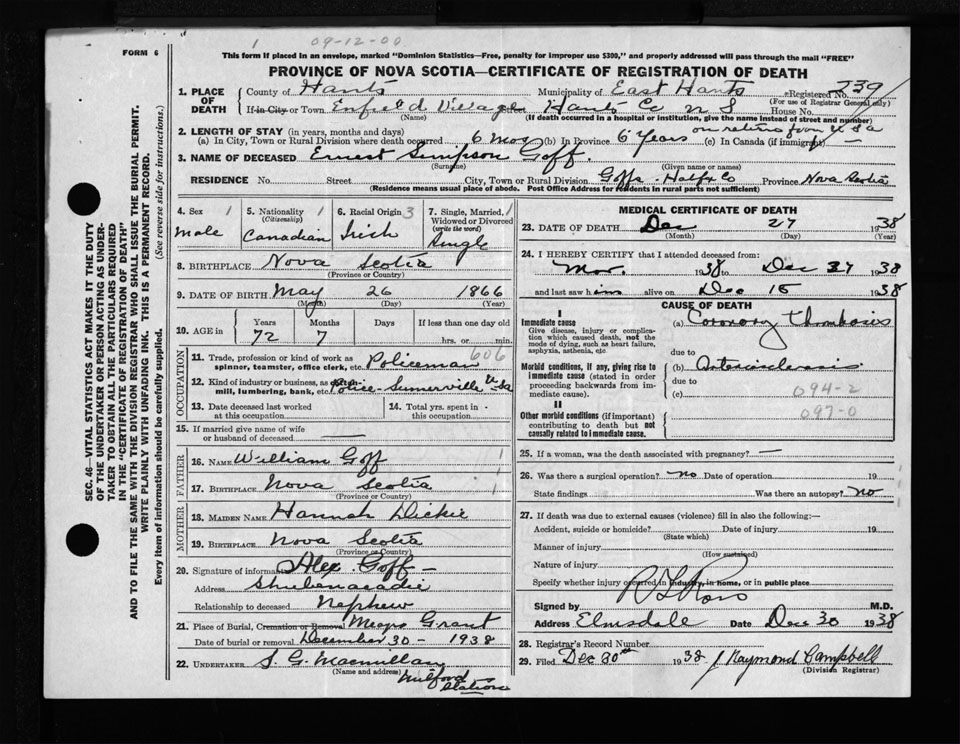 1 09-12-00
FORM 6
This form if placed in an envelope, marked "Dominion Statistics—Free, penalty for improper use $300," and properly addressed will pass through the mail "FREE"
PROVINCE OF NOVA SCOTIA—CERTIFICATE OF REGISTRATION OF DEATH
1. PLACE OF DEATH County of Hants Municipality of East Hants Registered No. 739
(For use of Registrar General only)
If in City or Town Enfield Village Hants Co N S House No.
(Name) (If death occurred in a hospital or institution, give the name instead of street and number)
2. LENGTH OF STAY (in years, months and days) on return from U S a
(a) In City, Town or Rural Division where death occurred 6 Mos (b) In Province 6 Years (c) In Canada (if immigrant) —
3. NAME OF DECEASED Ernest Simpson Goff.
(Surname) (Given name or names)
RESIDENCE No. Street City, Town or Rural Division Goffs Halfx Co Province Nova Scotia
(Residence means usual place of abode. Post Office Address for residents in rural parts not sufficient)
4. Sex 1 Male
5. Nationality 1 (Citizenship) Canadian
6. Racial Origin 3 Irish
7. Single, Married, 1 Widowed or Divorced (write the word) Single
8. BIRTHPLACE Nova Scotia
(Province or Country)
9. DATE OF BIRTH May 26 1866
(Month) (Day) (Year)
10. AGE in Years 72 Months 7 Days If less than one day old hrs. or min.
OCCUPATION
11. Trade, profession or kind of work as spinner, teamster, office clerk, etc. Policeman 606
12. Kind of industry or business, as mill, lumbering, bank, etc. Police-Sumerville USa
13. Date deceased last worked at this occupation
14. Total yrs. spent in this occupation
15. If married give name of wife or husband of deceased —
FATHER
16. NAME William Goff 1
17. BIRTHPLACE Nova Scotia 1
(Province or Country)
MOTHER
18. MAIDEN NAME Hannah Dickie
19. BIRTHPLACE Nova Scotia
(Province or Country)
20. Signature of informant Alex. Goff —
Address Shubenacadie
Relationship to deceased Nephew
21. Place of Burial, Cremation or Removal Grant
Date of burial or removal December 30 - 1938
22. UNDERTAKER S. G. Macmillan
(Name and address) Milford Station
MEDICAL CERTIFICATE OF DEATH
23. DATE OF DEATH Dec 27 1938
(Month) (Day) (Year)
24. I HEREBY CERTIFY that I attended deceased from:
Mar. 1938 to Dec 27 1938
and last saw him alive on Dec 15 1938
CAUSE OF DEATH
I
Immediate cause
Give disease, injury or complication which caused death, not the mode of dying, such as heart failure, asphyxia, asthenia, etc.
(a) Coronary Thombosis
due to
Morbid conditions, if any, giving rise to immediate cause (stated in order proceeding backwards from immediate cause).
(b) Arteriosclerosis
due to
(c) 094-2
097-0
II
Other morbid conditions (if important) contributing to death but not causally related to immediate cause.
25. If a woman, was the death associated with pregnancy? —
26. Was there a surgical operation? No Date of operation 19
State findings Was there an autopsy? No
27. If death was due to external causes (violence) fill in also the following:—
Accident, suicide or homicide? Date of injury 19
(State which)
Manner of injury
(How sustained)
Nature of injury
Specify whether injury occurred in industry, in home, or in public place
Signed by Ross M.D.
Address Elmsdale Date Dec 30 1938
28. Registrar's Record Number
29. Filed Dec 30th 1938 J Raymond Campbell
(Division Registrar)
SEC. 46—VITAL STATISTICS ACT MAKES IT THE DUTY
OF THE UNDERTAKER OR PERSON ACTING AS UNDER-
TAKER TO OBTAIN ALL THE PARTICULARS REQUIRED
IN THE "CERTIFICATE OF REGISTRATION OF DEATH"
AND TO FILE THE SAME WITH THE DIVISION REGISTRAR WHO SHALL ISSUE THE BURIAL PERMIT.
WRITE PLAINLY WITH UNFADING INK. THIS IS A PERMANENT RECORD.
Every item of information should be carefully supplied. (See reverse side for instructions.)